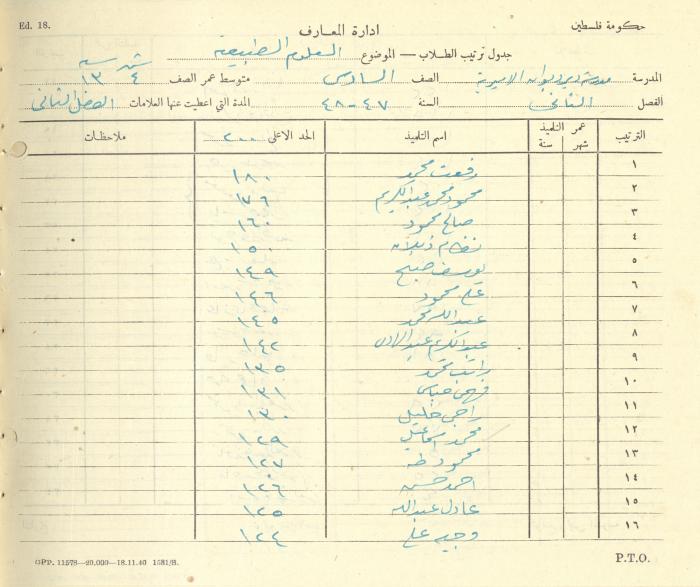 Ed. 18.
حكومة فلسطين
ادارة المعارف
جدول ترتيب الطلاب — الموضوع العلوم الطبيعية
المدرسة مدرسة ديوان الاميرية الصف السادس متوسط عمر الصف ٤ ١٣
شهر سنة
الفصل الثاني السنة ٤٧-٤٨ المدة التي اعطيت عنها العلامات الفصل الثاني
الترتيب عمر التلميذ شهر سنة اسم التلميذ الحد الاعلى ٢٠٠ ملاحظات
١ رفعت محمد ١٨٠
٢ محمود محمد عبد الكريم ١٧٦
٣ صالح محمود ١٦٠
٤ نظام ١٥٠
٥ يوسف صبح ١٤٩
٦ علي محمود ١٤٦
٧ عبد الله محمد ١٤٥
٨ عبد الكريم عبد الهادي ١٤٢
٩ راتب محمد ١٣٥
١٠ فهمي عباس ١٣١
١١ راجي خليل ١٣٠
١٢ محمد اسماعيل ١٢٩
١٣ محمود طه ١٢٧
١٤ احمد حسن ١٢٦
١٥ عادل عبد الله ١٢٥
١٦ وجيه علي ١٢٤
GPP. 11578—20.000—18.11.40 1581/B.
P.T.O.